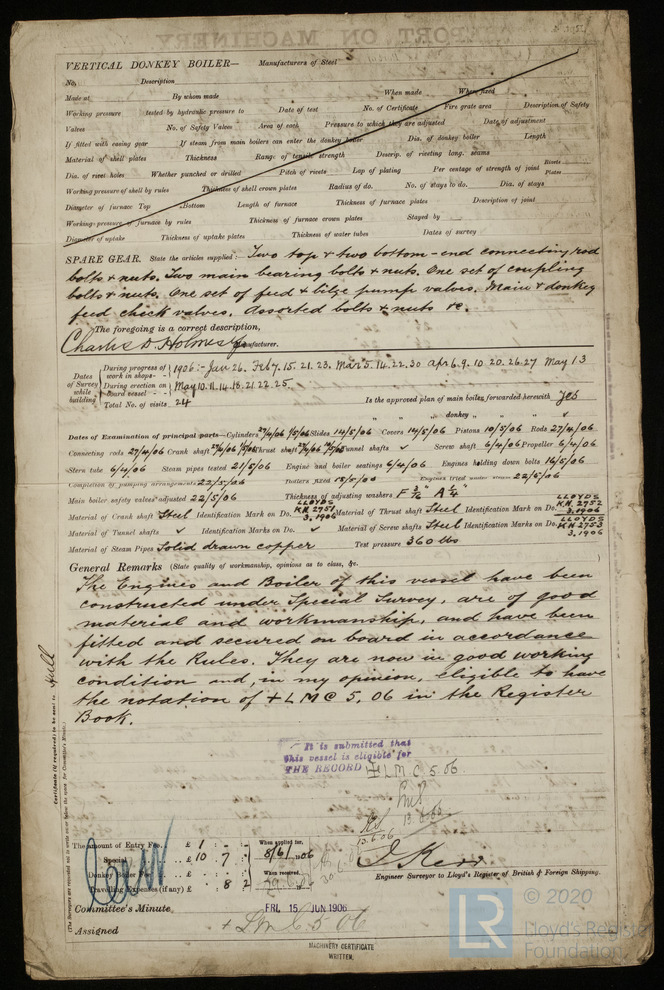 VERTICAL DONKEY BOILER— Manufacturers of Steel
No. Description
Made at By whom made When made When fixed
Working pressure tested by hydraulic pressure to Date of test No. of Certificate Fire grate area Description of Safety
Valves No. of Safety Valves Area of each Pressure to which they are adjusted Date of adjustment
If fitted with easing gear If steam from main boilers can enter the donkey boiler Dia. of donkey boiler Length
Material of shell plates Thickness Range of tensile strength Descrip. of riveting long. seams
Dia. of rivet holes Whether punched or drilled Pitch of rivets Lap of plating Per centage of strength of joint Rivets Plates
Working pressure of shell by rules Thickness of shell crown plates Radius of do. No. of stays to do. Dia. of stays
Diameter of furnace Top Bottom Length of furnace Thickness of furnace plates Description of joint
Working pressure of furnace by rules Thickness of furnace crown plates Stayed by
Diameter of uptake Thickness of uptake plates Thickness of water tubes Dates of survey
SPARE GEAR. State the articles supplied:— Two top & two bottom-end connecting rod
bolts & nuts. Two main bearing bolts & nuts. One set of coupling
bolts & nuts. One set of feed & bilge pump valves. Main & donkey
feed check valves. Assorted bolts & nuts &c.
The foregoing is a correct description,
Charles D. Holmes & Co Manufacturer.
Dates of Survey while building
During progress of work in shops-- 1906:- Jan 26. Feb 7. 15. 21. 23. Mar 5. 14. 22. 30 Apr 6. 9. 10 20. 26. 27 May 1 3
During erection on board vessel--- May 10. 11. 14. 18. 21. 22. 25.
Total No. of visits 24 Is the approved plan of main boiler forwarded herewith Yes
" " " donkey " " "
Dates of Examination of principal parts—Cylinders 27/4/06 1/5/06 Slides 14/5/06 Covers 14/5/06 Pistons 10/5/06 Rods 27/4/06
Connecting rods 27/4/06 Crank shaft Thrust shaft Tunnel shafts ✓ Screw shaft 6/4/06 Propeller 6/4/06
Stern tube 6/4/06 Steam pipes tested 21/5/06 Engine and boiler seatings 6/4/06 Engines holding down bolts 16/5/06
Completion of pumping arrangements 22/5/06 Boilers fixed 18/5/06 Engines tried under steam 22/5/06
Main boiler safety valves adjusted 22/5/06 Thickness of adjusting washers F 3/16 A 1/4
Material of Crank shaft Steel Identification Mark on Do. LLOYDS KN 2751 3.1906 Material of Thrust shaft Steel Identification Mark on Do. LLOYDS KN 2752 3.1906
Material of Tunnel shafts ✓ Identification Marks on Do. ✓ Material of Screw shafts Steel Identification Marks on Do. LLOYDS KN 2753 3.1906
Material of Steam Pipes Solid drawn copper Test pressure 360 lbs
General Remarks (State quality of workmanship, opinions as to class, &c.
The Engines and Boiler of this vessel have been
constructed under Special Survey, are of good
material and workmanship, and have been
fitted and secured on board in accordance
with the Rules. They are now in good working
condition and, in my opinion, eligible to have
the notation of + LMC 5,06 in the Register
Book.
Certificate (if required) to be sent to Hull
(The Surveyors are requested not to write on or below the space for Committee's Minute.)
It is submitted that
this vessel is eligible for
THE RECORD + LMC 5 06
13.6.06
13.6.06
The amount of Entry Fee.. £ 1 . - . - When applied for,
Special .. £ 10 . 7 . 8/6/1906
Donkey Boiler Fee .. £ . . When received,
Travelling Expenses (if any) £ . 8 . 2
J. Kerr
Engineer Surveyor to Lloyd's Register of British & Foreign Shipping.
Committee's Minute FRI. 15 JUN 1906
Assigned + LMC 5 06
MACHINERY CERTIFICATE
WRITTEN.
LR
© 2020
Lloyd's Register
Foundation